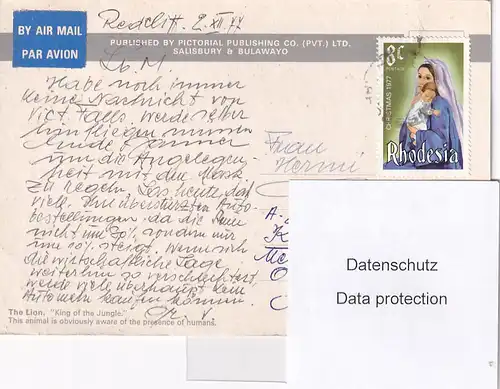 Redcliff 2. XII. 77
BY AIR MAIL
PAR AVION
PUBLISHED BY PICTORIAL PUBLISHING CO. (PVT.) LTD.
SALISBURY & BULAWAYO
8c
POSTAGE
CHRISTMAS 1977
Rhodesia
Lb. M
Habe noch immer
keine Nachricht von
Vict. Falls. Werde selber
hinfliegen müssen
Ende Jänner
um die Angelegen-
heit mit dem
zu regeln. heute, daß
viele Auto-
bestellungen da die
nicht um 20%, sondern nur
um 10% steigt. Wenn sich
die wirtschaftliche Lage
weiterhin so verschlechtert,
werde viele überhaupt kein
Automehr kaufen können.
Gr. V.
Frau
Hermi
The Lion, "King of the Jungle."
This animal is obviously aware of the presence of humans.
Datenschutz
Data protection